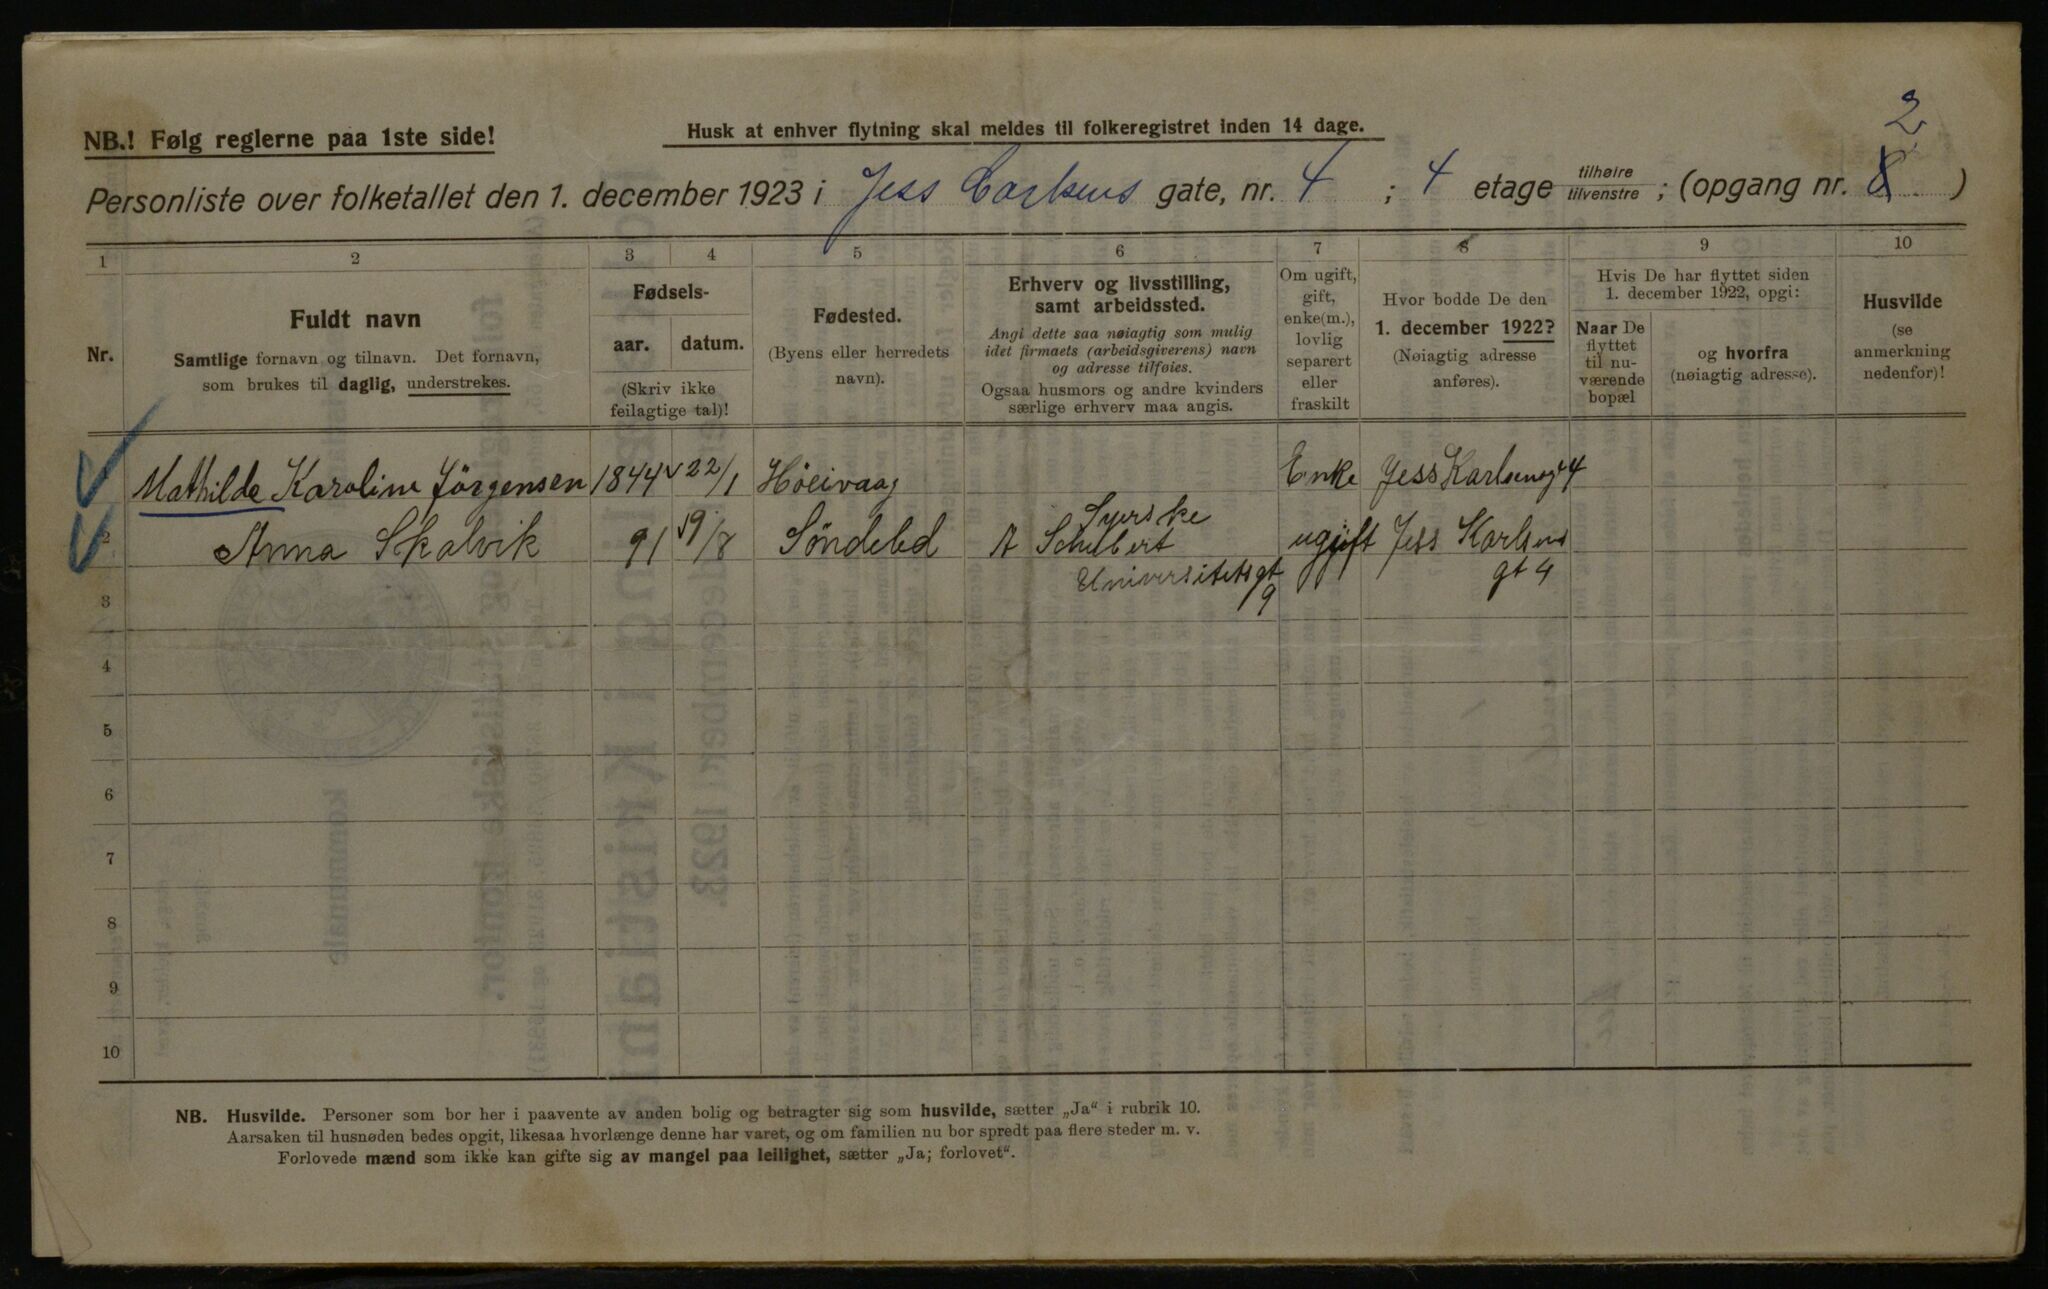 NB.! Følg reglerne paa 1ste side!
Husk at enhver flytning skal meldes til folkeregistret inden 14 dage.
2
Personliste over folketallet den 1. december 1923 i Jess Carlsens gate, nr. 4 ; 4 etage tilhøire tilvenstre ; (opgang nr. 8 )
1 2 3 4 5 6 7 8 9 10
Nr.
Fuldt navn
Samtlige fornavn og tilnavn. Det fornavn,
som brukes til daglig, understrekes.
Fødsels-
aar. datum.
(Skriv ikke
feilagtige tal)!
Fødested.
(Byens eller herredets
navn).
Erhverv og livsstilling,
samt arbeidssted.
Angi dette saa nøiagtig som mulig
idet firmaets (arbeidsgiverens) navn
og adresse tilføies.
Ogsaa husmors og andre kvinders
særlige erhverv maa angis.
Om ugift,
gift,
enke(m.),
lovlig
separert
eller
fraskilt
Hvor bodde De den
1. december 1922?
(Nøiagtig adresse
anføres).
Hvis De har flyttet siden
1. december 1922, opgi:
Naar De
flyttet
til nu-
værende
bopæl
og hvorfra
(nøiagtig adresse).
Husvilde
(se
anmerkning
nedenfor)!
Mathilde Karoline Jörgensen 1844 22/1 Höeivaag Enke Jess Karlsensgt 4
2 Anna Skalvik 91 19/8 Söndeled Syerske
A Schubert
Universitetsgt
9
ugift Jess Karlsens
gt 4
3
4
5
6
7
8
9
10
NB. Husvilde. Personer som bor her i paavente av anden bolig og betragter sig som husvilde, sætter „Ja“ i rubrik 10.
Aarsaken til husnøden bedes opgit, likesaa hvorlænge denne har varet, og om familien nu bor spredt paa flere steder m. v.
Forlovede mænd som ikke kan gifte sig av mangel paa leilighet, sætter „Ja; forlovet“.